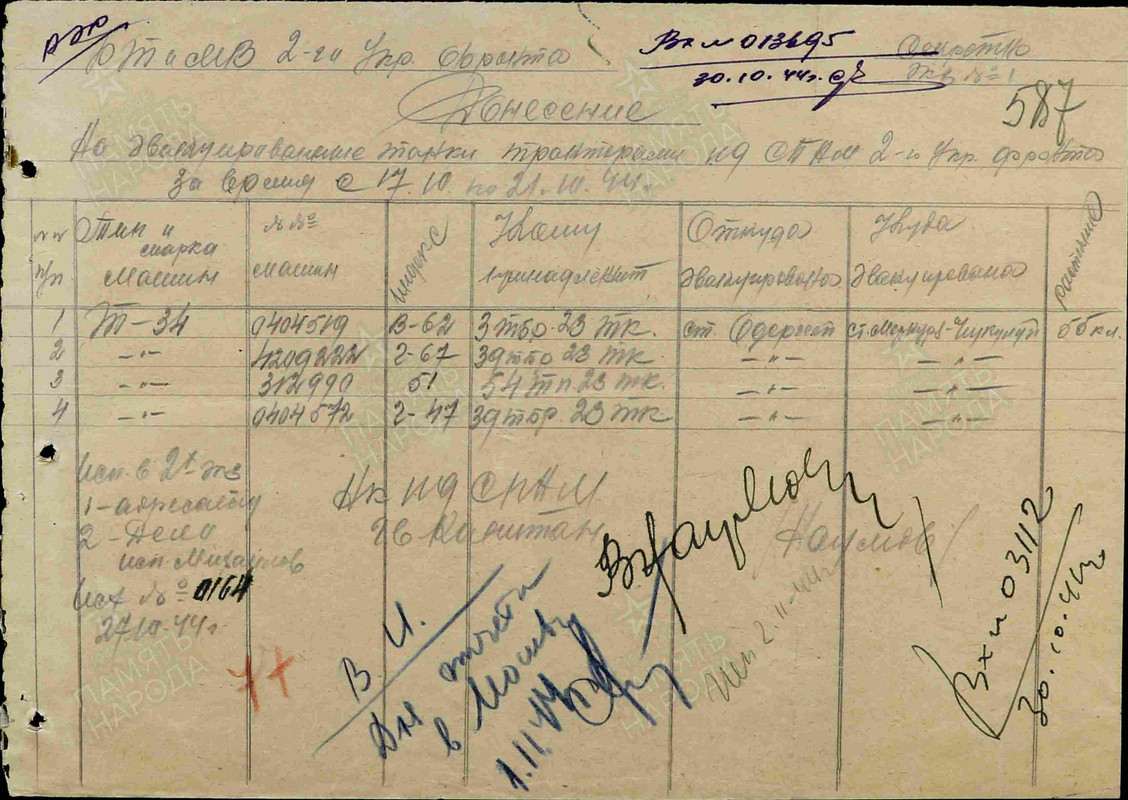 БТ и МВ 2-го Укр. фронта
Вх № 013695
30.10.44г.
Секретно
экз №1
587
Донесение
На эвакуированные танки тракторами ПД СПАМ 2-го Укр. фронта
за время с 17.10. по 21.10.44г.
№№ п/п | Тип и марка машин | №№ машин | индекс | Кому принадлежит | Откуда эвакуировано | Куда эвакуировано | расстояние
1 | Т-34 | 0404519 | В-62 | 3 тбр. 23 тк. | ст. | ст. | 55 кл.
2 | -"- | 4209222 | 2-67 | 39 тбр 23 тк. | -"- | -"-
3 | -"- | 312990 | 51 | 54 тп 23 тк. | -"- | -"-
4 | -"- | 0404572 | 2-47 | 39 тбр. 23 тк | -"- | -"-
Исп. в 2х экз
1-адресату
2-Дело
исп. Михайлов
Исх №0164
27.10.44г
Нк ПД СПАМ
Гв Капитан /Наумов/
В. И.
Для отчета
в Москву
1.11.44
Исп 2.11.44г
Вх № 03112
30.10.44г
ПАМЯТЬ НАРОДА